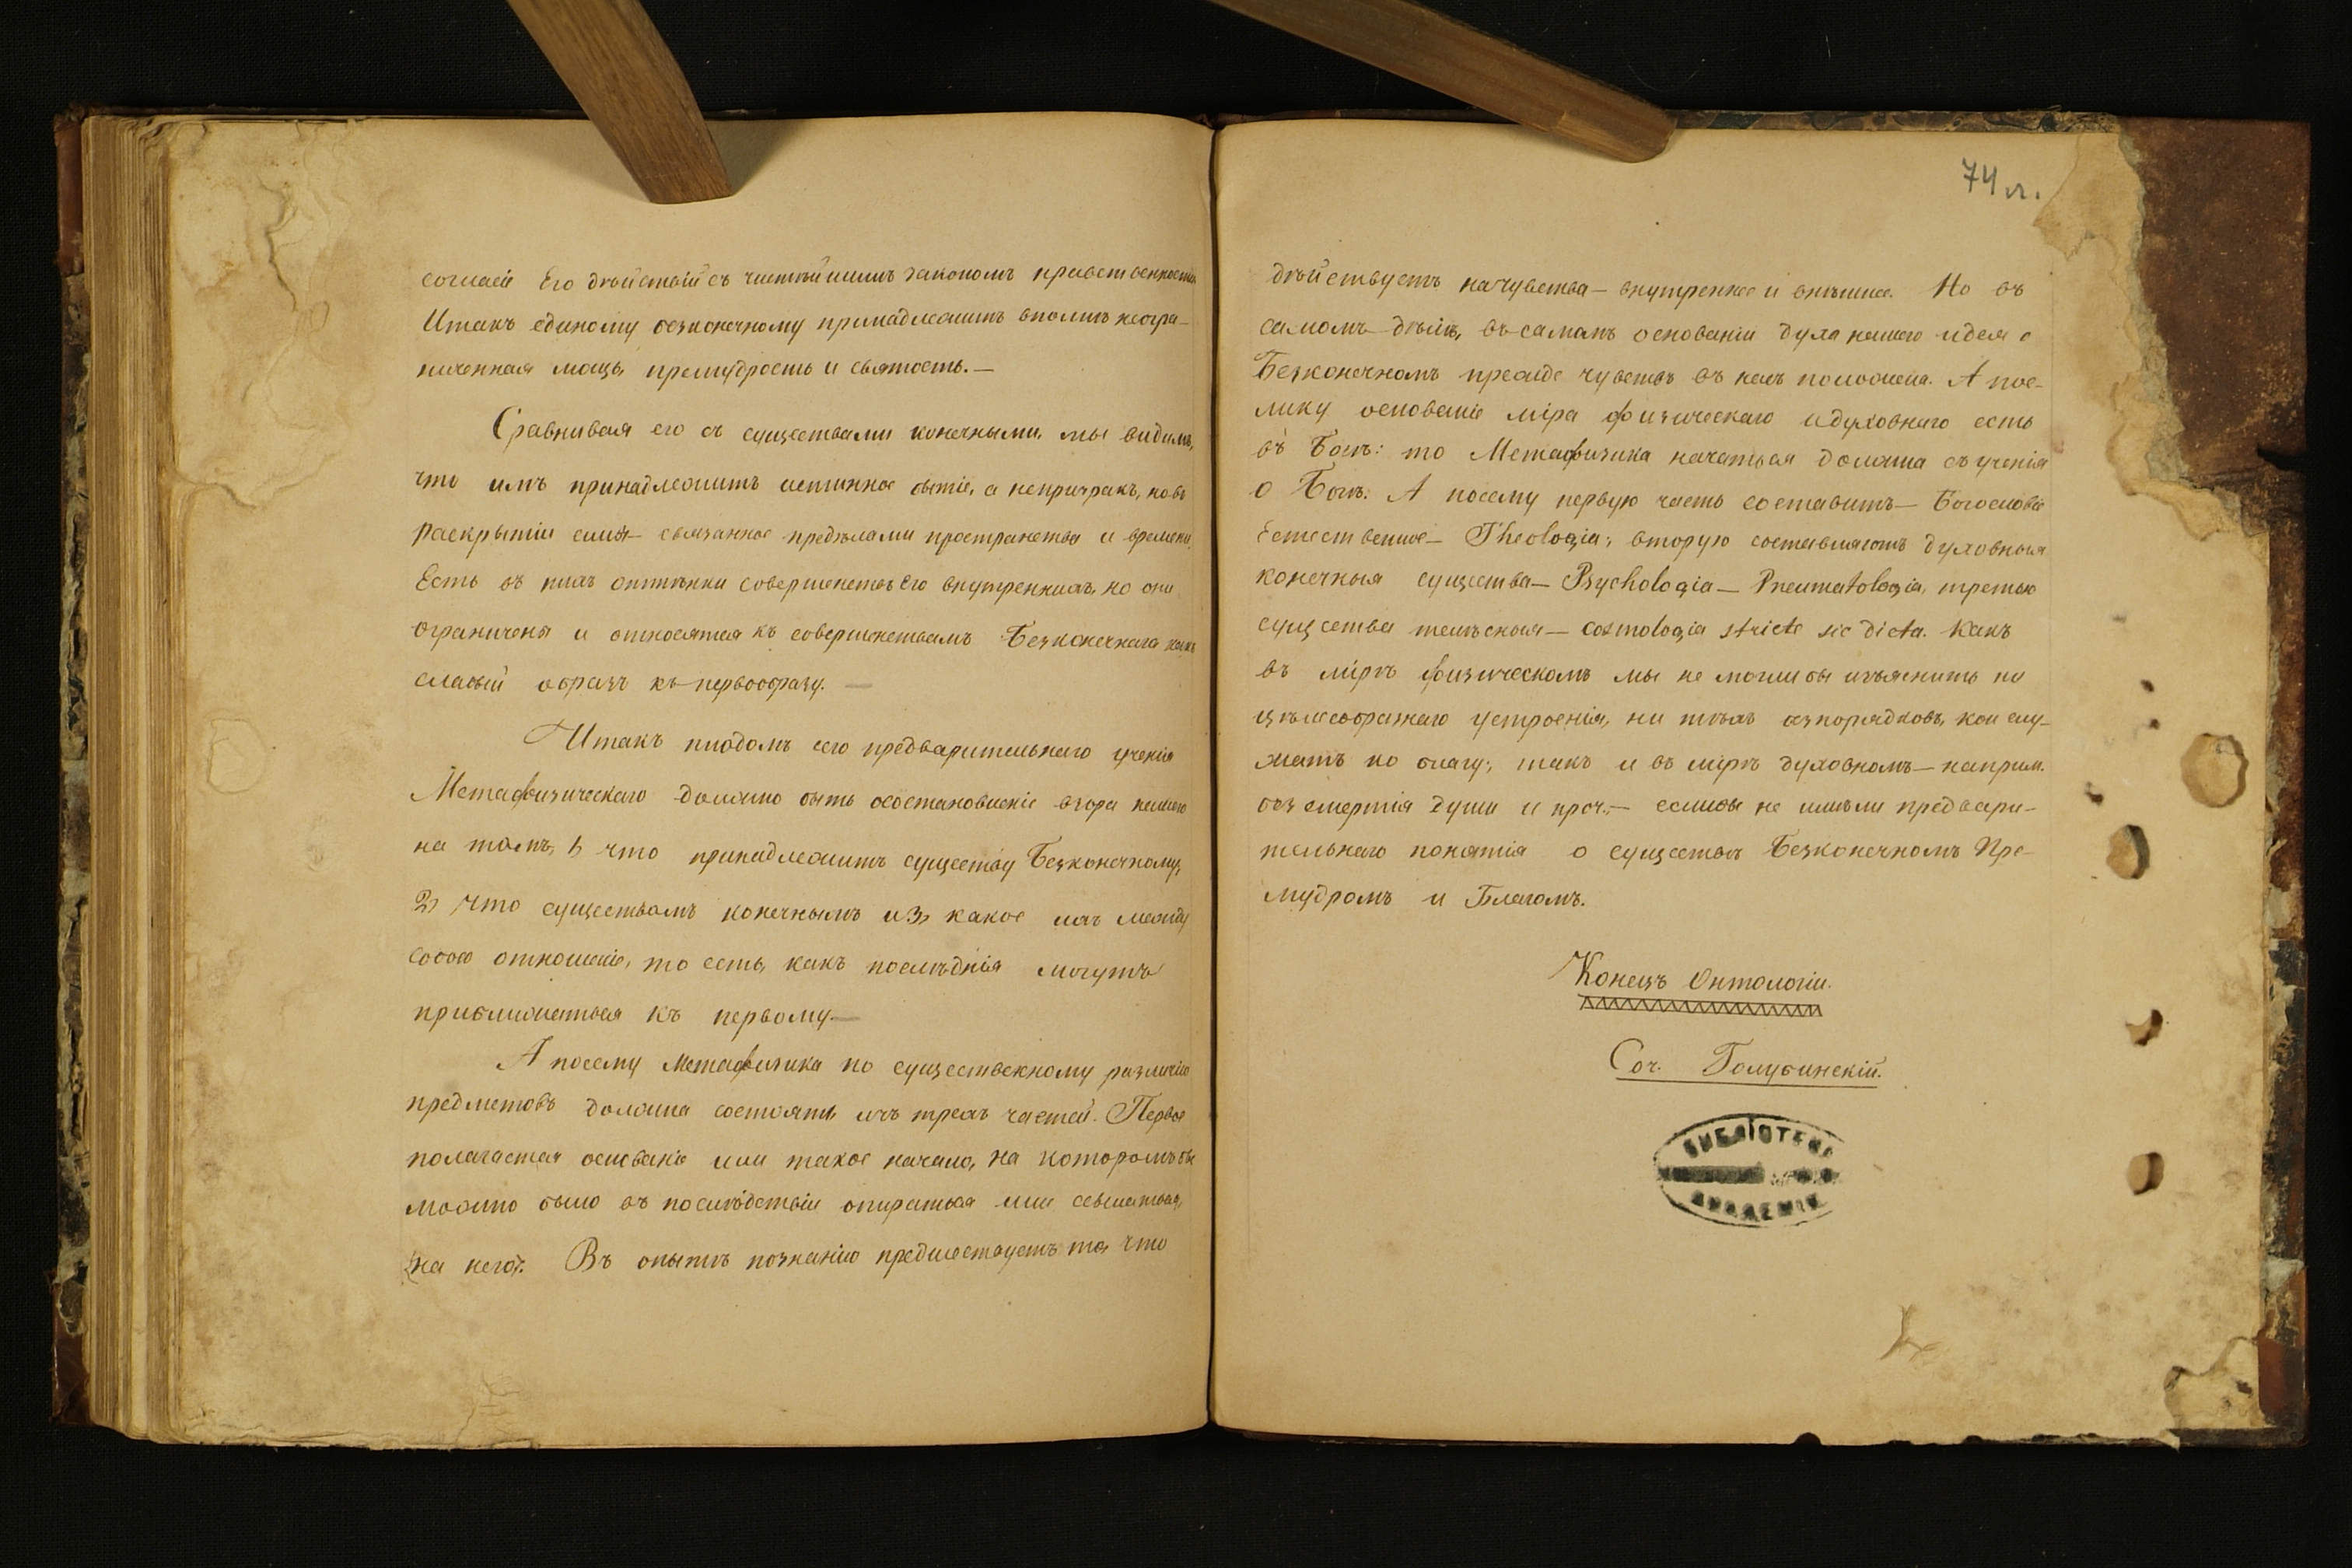 согласіи Его дѣйствій съ чистѣйшимъ закономъ нравственности
Итакъ единому безконечному принадлежитъ вполнѣ неогра-
ниченная мощь, премудрость и святость. —
Сравнивая его съ существами конечными, мы видимъ,
что имъ принадлежитъ истинное бытіе, а непризракъ, но въ
раскрытіи связанное предѣлами пространства и времени.
Есть въ нихъ оттѣнки совершенствъ Его внутреннихъ, но они
ограничены и относятся къ совершенствамъ Безконечнаго какъ
слабый образъ къ первообразу. —
Итакъ плодомъ сего предварительнаго ученія
Метафизическаго должно быть остановленіе взора нашего
на томъ, 1, что принадлежитъ существу Безконечному,
2, что существамъ конечнымъ и 3, какое ихъ между
собою отношеніе, то есть, какъ послѣднія могутъ
приближаться къ первому. —
А посему Метафизика по существенному различію
предметовъ должна состоять изъ трехъ частей. Первое
полагается основаніе или такое начало, на которомъ бы
можно было въ послѣдствіи опираться или
на него. Въ опытѣ познанію предшествуетъ то, что
74 л.
дѣйствуетъ на чувства — внутреннее и внѣшнее. Но въ
самомъ дѣлѣ, въ самомъ основаніи духа нашего идея о
Безконечномъ прежде чувствъ въ насъ положена. А пое-
лику основаніе міра физическаго и духовнаго есть
въ Богѣ: то Метафизика начаться должна съ ученія
о Богѣ. А посему первую часть составитъ — Богословіе
Естественное — Theologia; вторую составляютъ духовныя
конечныя существа — Psychologia — Pneumatologia, третью
существа тѣлесныя — cosmologia stricte sic dicta. Какъ
въ мірѣ физическомъ мы не могли бы изъяснить ни
цѣлесообразнаго устроенія, ни тѣхъ безпорядковъ, кои слу-
жатъ ко благу; такъ и въ мірѣ духовномъ — наприм.
безсмертія души и проч. — еслибы не имѣли предвари-
тельнаго понятія о существѣ Безконечномъ Пре-
мудромъ и Благомъ.
Конецъ Онтологіи.
Соч. Голубинскій.
БИБЛІОТЕКА
АКАДЕМІИ